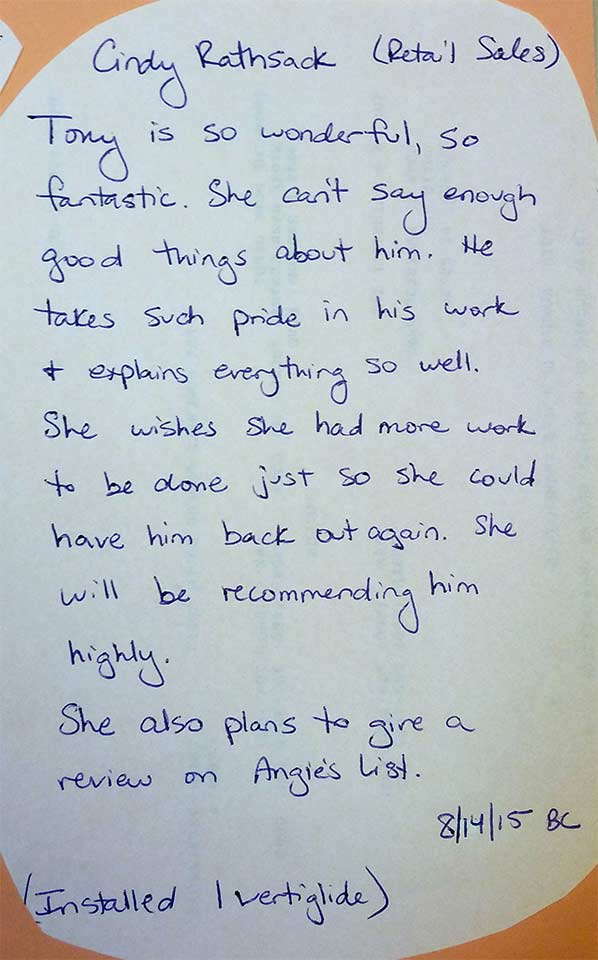 Cindy Rathsack (Retail Sales)
Tony is so wonderful, so
fantastic. She can't say enough
good things about him. He
takes such pride in his work
+ explains everything so well.
She wishes she had more work
to be done just so she could
have him back out again. She
will be recommending him
highly.
She also plans to give a
review on Angie's List.
8/14/15 BC
(Installed 1 vertiglide)